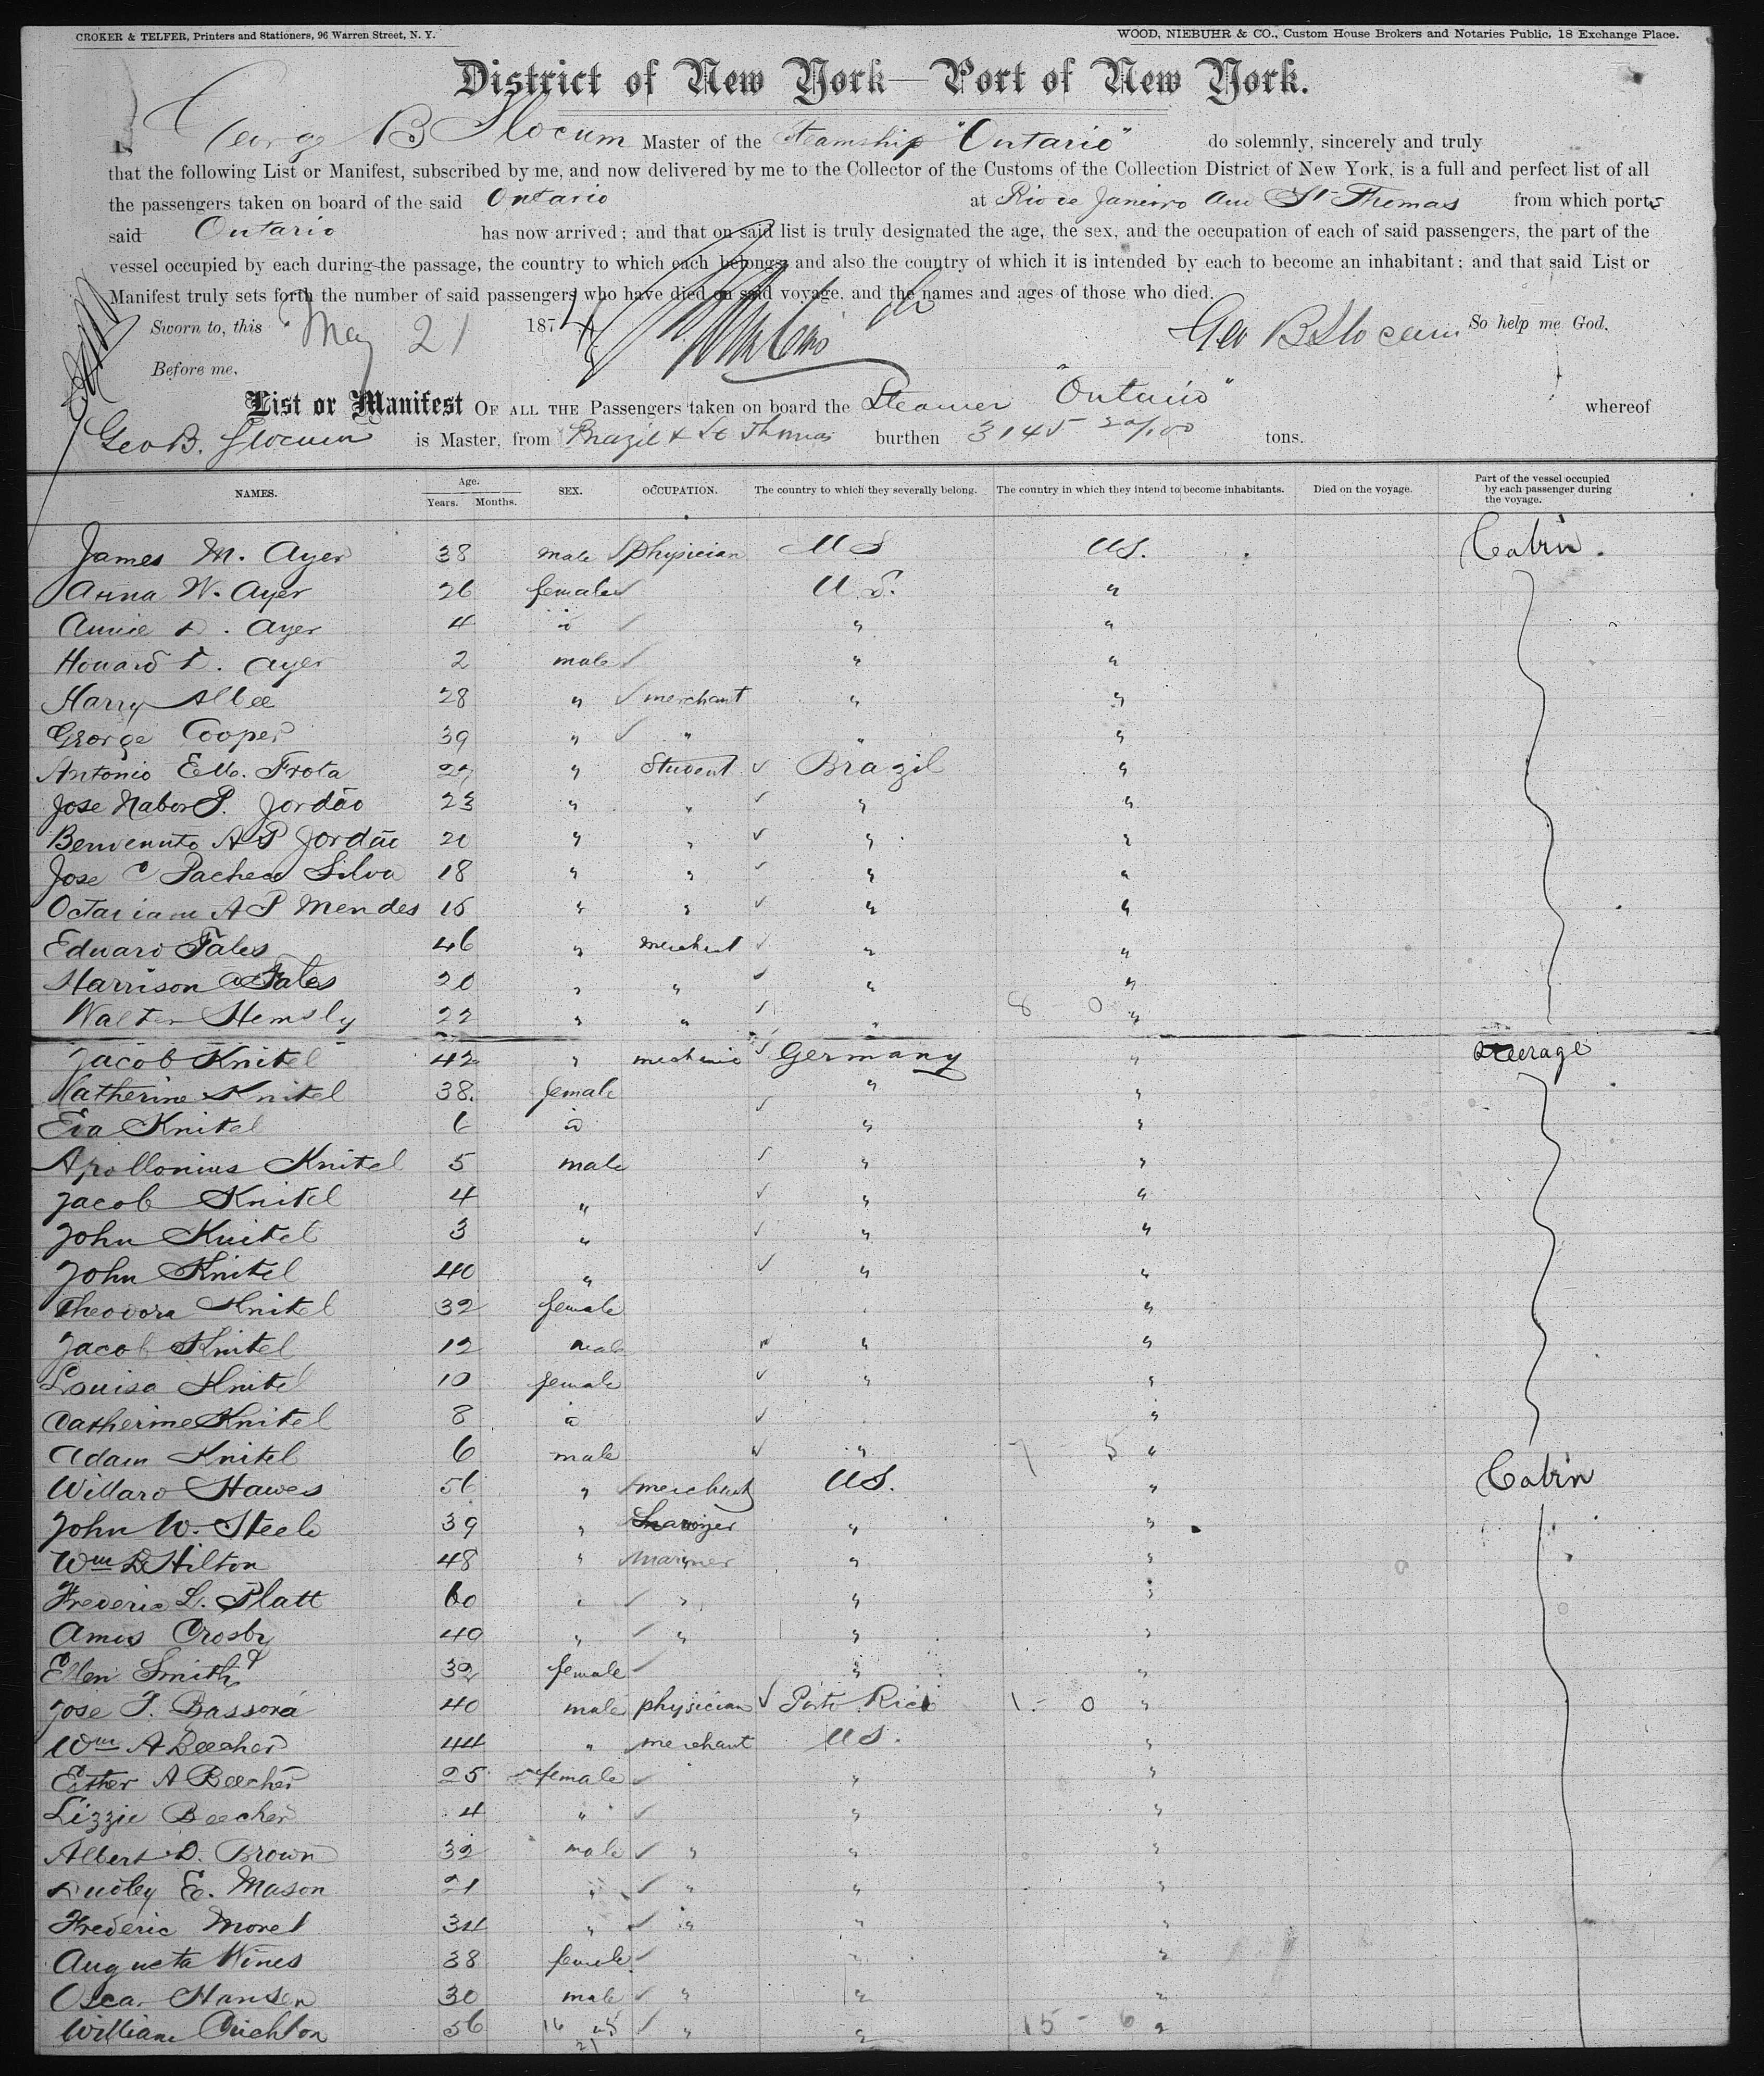 CROKER & TELFER, Printers and Stationers, 96 Warren Street, N. Y.
WOOD, NIEBUHR & CO., Custom House Brokers and Notaries Public, 18 Exchange Place.
District of New York—Port of New York.
George B Slocum Master of the Steamship "Ontario" do solemnly, sincerely and truly
that the following List or Manifest, subscribed by me, and now delivered by me to the Collector of the Customs of the Collection District of New York, is a full and perfect list of all
the passengers taken on board of the said Ontario at Rio de Janeiro and St Thomas from which ports
said Ontario has now arrived; and that on said list is truly designated the age, the sex, and the occupation of each of said passengers, the part of the
vessel occupied by each during the passage, the country to which each belongs, and also the country of which it is intended by each to become an inhabitant; and that said List or
Manifest truly sets forth the number of said passengers who have died on said voyage, and the names and ages of those who died.
Sworn to, this May 21 1874 Geo B Slocum So help me God.
Before me,
List or Manifest OF ALL THE Passengers taken on board the Steamer "Ontario" whereof
Geo B. Slocum is Master, from Brazil & St Thomas burthen 3145 20/100 tons.
NAMES. Age. Years. Months. SEX. OCCUPATION. The country to which they severally belong. The country in which they intend to become inhabitants. Died on the voyage. Part of the vessel occupied by each passenger during the voyage.
James M. Ayer 38 male physician U S U S. Cabin.
Anna W. Ayer 26 female U. S. "
Annie D. Ayer 4 do " "
Howard D. Ayer 2 male " "
Harry Albee 28 " merchant " "
George Cooper 39 " " " "
Antonio E Frota 27 " Student Brazil "
Jose Nabor P. Jordão 23 " " " "
Benvenuto A P Jordão 20 " " " "
Jose C Pacheco Silva 18 " " " "
Octaviano A P Mendes 15 " " " "
Edward Fales 46 " merchant " "
Harrison Fales 20 " " " "
Walter Hemsly 22 " " " 8 - 0 "
Jacob Knitel 42 " mechanic Germany " Steerage
Katherine Knitel 38. female " "
Eva Knitel 6 do " "
Apollonius Knitel 5 male " "
Jacob Knitel 4 " " "
John Knitel 3 " " "
John Knitel 40 " " "
Theodora Knitel 32 female "
Jacob Knitel 12 male " "
Louisa Knitel 10 female " "
Catherine Knitel 8 do "
Adam Knitel 6 male " 7 - 5 "
Willard Hawes 56 " merchant U S. " Cabin
John W. Steele 39 " Lawyer " "
Wm D Hilton 48 " Mariner " "
Frederic L. Platt 60 " " " "
Amos Crosby 40 " " " "
Ellen Smith 32 female " "
Jose T. Bassora 40 male physician Porto Rico 1 - 0 "
Wm A Beecher 44 " merchant U S. "
Esther A Beecher 25 female " "
Lizzie Beecher 4 " " "
Albert D. Brown 32 male " " "
Dudley E. Mason 21 " " " "
Frederic Morel 34 " " " "
Augusta Wines 38 female " "
Oscar Hansen 30 male " " "
William Crichton 56 16 25 " " 15 - 6 "
21